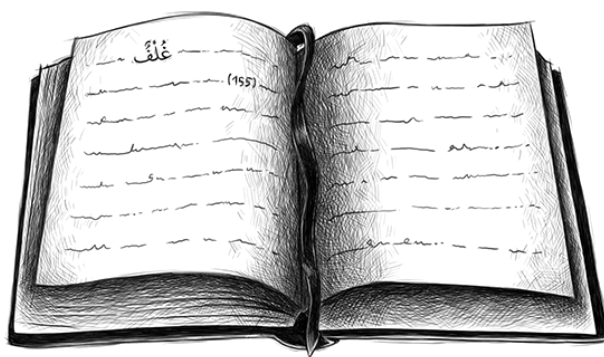 غُلْفٌ
(155)